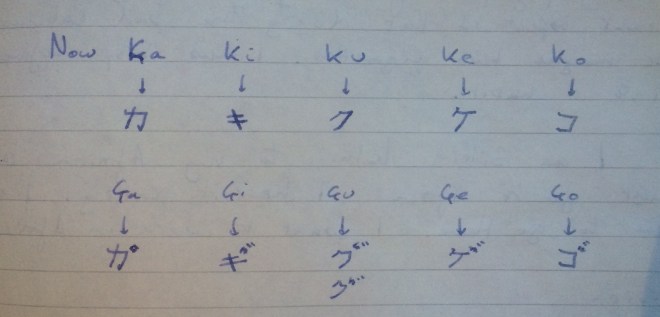 Now Ka Ki Ku Ke Ko
↓ ↓ ↓ ↓ ↓
カ キ ク ケ コ
Ga Gi Gu Ge Go
↓ ↓ ↓ ↓ ↓
カ゚ ギ グ ゲ ゴ
グ